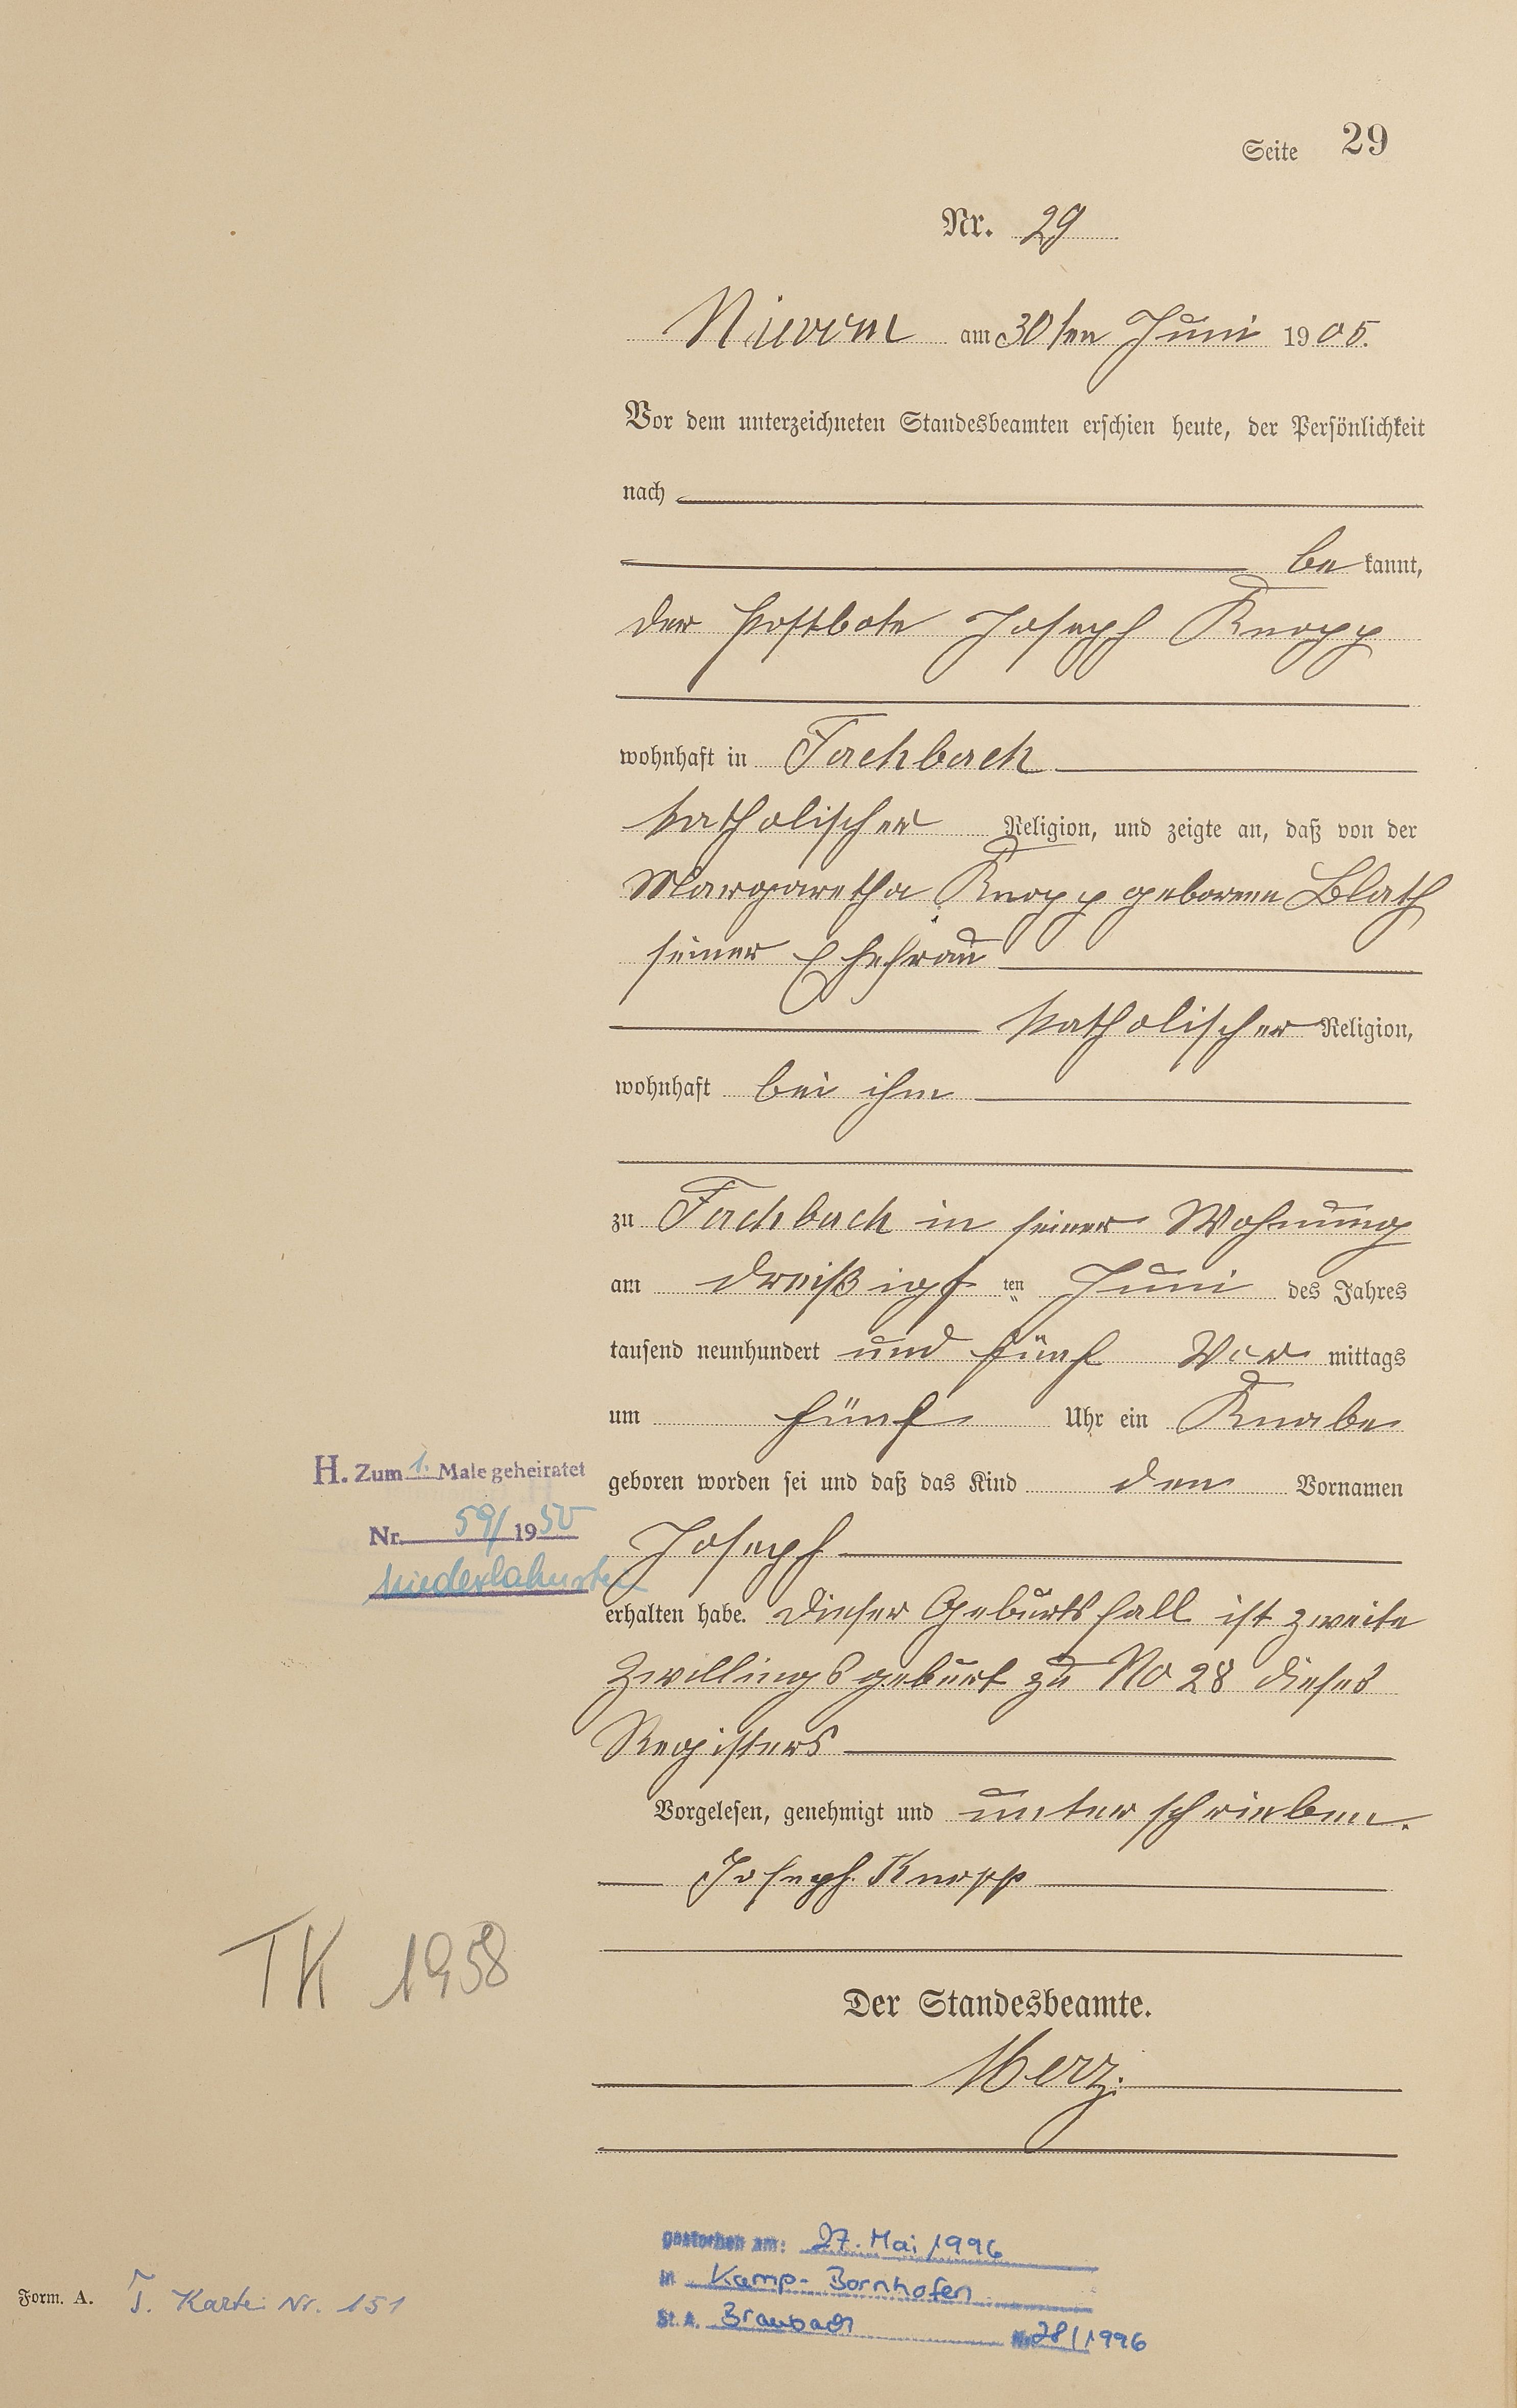 Seite 29
Nr. 29
Nievern am 30ten Juni 1905.
Vor dem unterzeichneten Standesbeamten erschien heute, der Persönlichkeit
nach
be kannt,
der Postbote Joseph Knopp
wohnhaft in Fachbach
katholischer Religion, und zeigte an, daß von der
Margaretha Knopp geborene Blath
seiner Ehefrau
katholischer Religion,
wohnhaft bei ihm
zu Fachbach in seiner Wohnung
am dreißigsten Juni des Jahres
tausend neunhundert und fünf Vor mittags
um fünf Uhr ein Knabe
H. Zum 1. Male geheiratet
geboren worden sei und daß das Kind den Vornamen
Nr. 59/1950
Joseph
Niederlahnstein
erhalten habe. Dieser Geburtsfall ist zweite
Zwillingsgeburt zu No 28 dieses
Registers
Vorgelesen, genehmigt und unterschrieben.
Joseph Knopp
TK 1958
Der Standesbeamte.
Merz.
gestorben am: 27. Mai 1996
in Kamp-Bornhofen
St. A. Braubach Nr. 28/1996
Form. A. T. Kartei Nr. 151